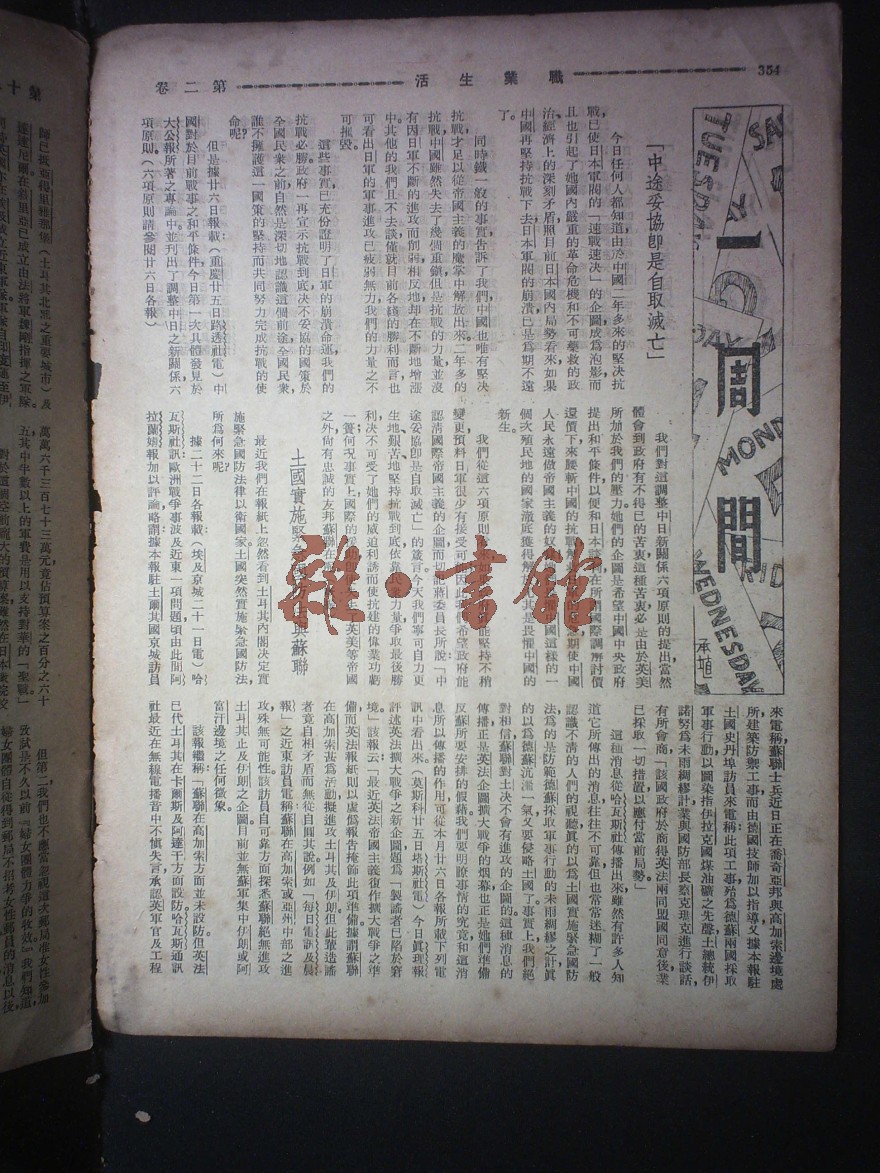 354
職業生活
第二卷
周間
承埴
SA
TUESDAY
DAY
MOND
RID
WEDNESDAY
「中途妥協即是自取滅亡」
今日任何人都知道由於中國二年多來的堅決抗
戰已使日本軍閥的「速戰速決」的企圖成為泡影而
且也引起了她國內嚴重的革命危機和不可藥救的政
治經濟上的深刻矛盾照目前日本國內局勢看來如果
中國再堅持抗戰下去日本軍閥的崩潰已是為期不遠
了。
同時鐵一般的事實告訴了我們中國也唯有堅決
抗戰才足以從帝國主義的魔掌中解放出來。二年多的
抗戰中國雖然失去了幾個重鎮但是抗戰的力量並沒
有因日軍不斷的進攻而削弱相反地却在不斷地增漲
中。其他的我們且不去談僅就目前各綫的勝利而言也
可看出日軍的軍事進攻已疲弱無力我們的力量之不
可摧毀。
這些事實已充份證明了日軍的崩潰命運我們的
抗戰必勝。政府一再宣示抗戰到底決不妥協的國策於
全國民衆之前自然是深切地認識這個前途全國民衆,
誰不擁護這一國策的堅持而共同努力完成抗戰的使
命呢?
但是據廿六日報載:(重慶廿五日路透社電)中
國對於目前戰事之和平條件今日第一次具體發見於
大公報所著之專論中並列出了調整中日之新關係六
項原則(六項原則請參閱廿六日各報)
我們對這調整中日新關係六項原則的提出當然
體會到政府有不得已的苦衷這種苦衷必是由於英美
所加於我們的壓力她們的企圖是希望中國中央政府
提出和平條件以便和日本談判在所謂國際調解討價
還價下來腰斬中國的抗戰
人民永遠做帝國主義的奴
個次殖民地的國家澈底獲得解放其是畏懼中國的
新生。
我們從這六項原則
變更預料日軍很少有接受可
認清國際帝國主義的企圖而切記蔣委員長所說「中
途妥協即是自取滅亡」的箴言。今天我們寧可自力更
生地艱苦地堅持抗戰到底依靠民衆力量爭取最後勝
利決不可受了她們的威迫利誘而使抗建的偉業功虧
一簣何況事實上國際的援助
之外尚有忠誠的友邦蘇聯在
土國實施緊急國防法與蘇聯
最近我們在報紙上忽然看到土耳其內閣決定實
施緊急國防法律以衛國家土國突然實施緊急國防法
所爲何來呢?
據二十二日各報載(埃及京城二十一日電)哈
瓦斯社訊歐洲戰爭事波及近東一項問題頃由此間阿
拉蘭姆報加以評論略謂據本報駐土爾其國京城訪員
來電稱蘇聯士兵近日正在喬奇亞邦與高加索邊境處
所建築防禦工事而由德國技師加以指導又據本報駐
土國史丹埠訪員來電稱此項工事殆為德蘇兩國採取
軍事行動以圖染指伊拉克國煤油礦之先聲土總統伊
諾努為未雨綢繆計業與國防部長察克瑪克進行談話,
有所會商「該國政府於商得英法兩同盟國同意後業
已採取一切措置以應付當前局勢。」
這種消息從哈瓦斯社傳播出來雖然有許多人知
道它所傳出的消息往往不可靠但也常常迷糊了一般
認識不清的人們的視聽眞的以為土國實施緊急國防
法為的是防範德蘇採取軍事行動的未雨綢繆之計眞
的以為德蘇沆瀣一氣又要侵略土國了事實上我們絕
對相信蘇聯對土決不會有進攻的企圖的。這種消息的
傳播正是英法企圖擴大戰爭的烟幕也正是她們準備
反蘇所要安排的假藉我們要明瞭事情的究竟和這消
息所以傳播的作用可從本月廿六日各報所載下列電
訊中看出來。(莫斯科廿五日塔斯社電)今日眞理報
評述英法擴大戰爭之新企圖題為「製謠者已陷於窘
境。」該報云:「最近英法帝國主義復作擴大戰爭之準
備而英法報紙則以虛僞報告掩飾此項準備據謂蘇聯
在高加索甚為活動擬進攻土耳其及伊朗但此輩造謠
者竟自相矛盾而無從自圓其說。例如「每日電訊及晨
報」之近東訪員電稱蘇聯在高加索或亞州中部之進
攻殊無可能性。該訪員自可靠方面探悉蘇聯絕無進攻
土耳其止及伊朗之企圖目前並無蘇軍集中伊朗或阿
富汗邊境之任何徵象。
該報繼稱:「蘇聯在高加索方面並未設防但英法
已代土耳其在卡爾斯及阿達干方面設防。哈瓦斯通訊
社最近在無線電播音中不慎失言,承認英軍官及工程
雜·書館
第十
師已抵亞得里雅那堡(土耳其北進之重要城市)及
萬萬六千三百七十三萬元竟佔預算案之百分之六十
五其中半數以上的軍費是用以支持對華的「聖戰」
但第二我們也不應當忽視這次郵局准女性參加
攷試是不久以前「婦女團體力爭的收效」我們知道,
婦女團體自從得到郵局不招考女性郵員的消息以後